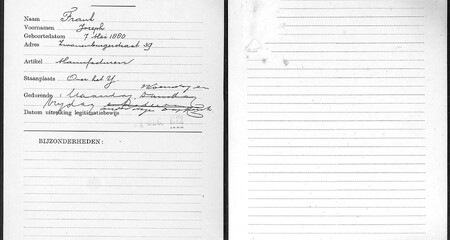 Naam Frank
Voornamen Joseph
Geboortedatum 7 Mei 1880
Adres Zwanenburgerstraat 39
Artikel Manufacturen
Staanplaats Over het Y
Woensdag en
Gedurende Maandag, Dinsdag
Vrijdag
Datum uitreiking legitimatiebewijs
BIJZONDERHEDEN: